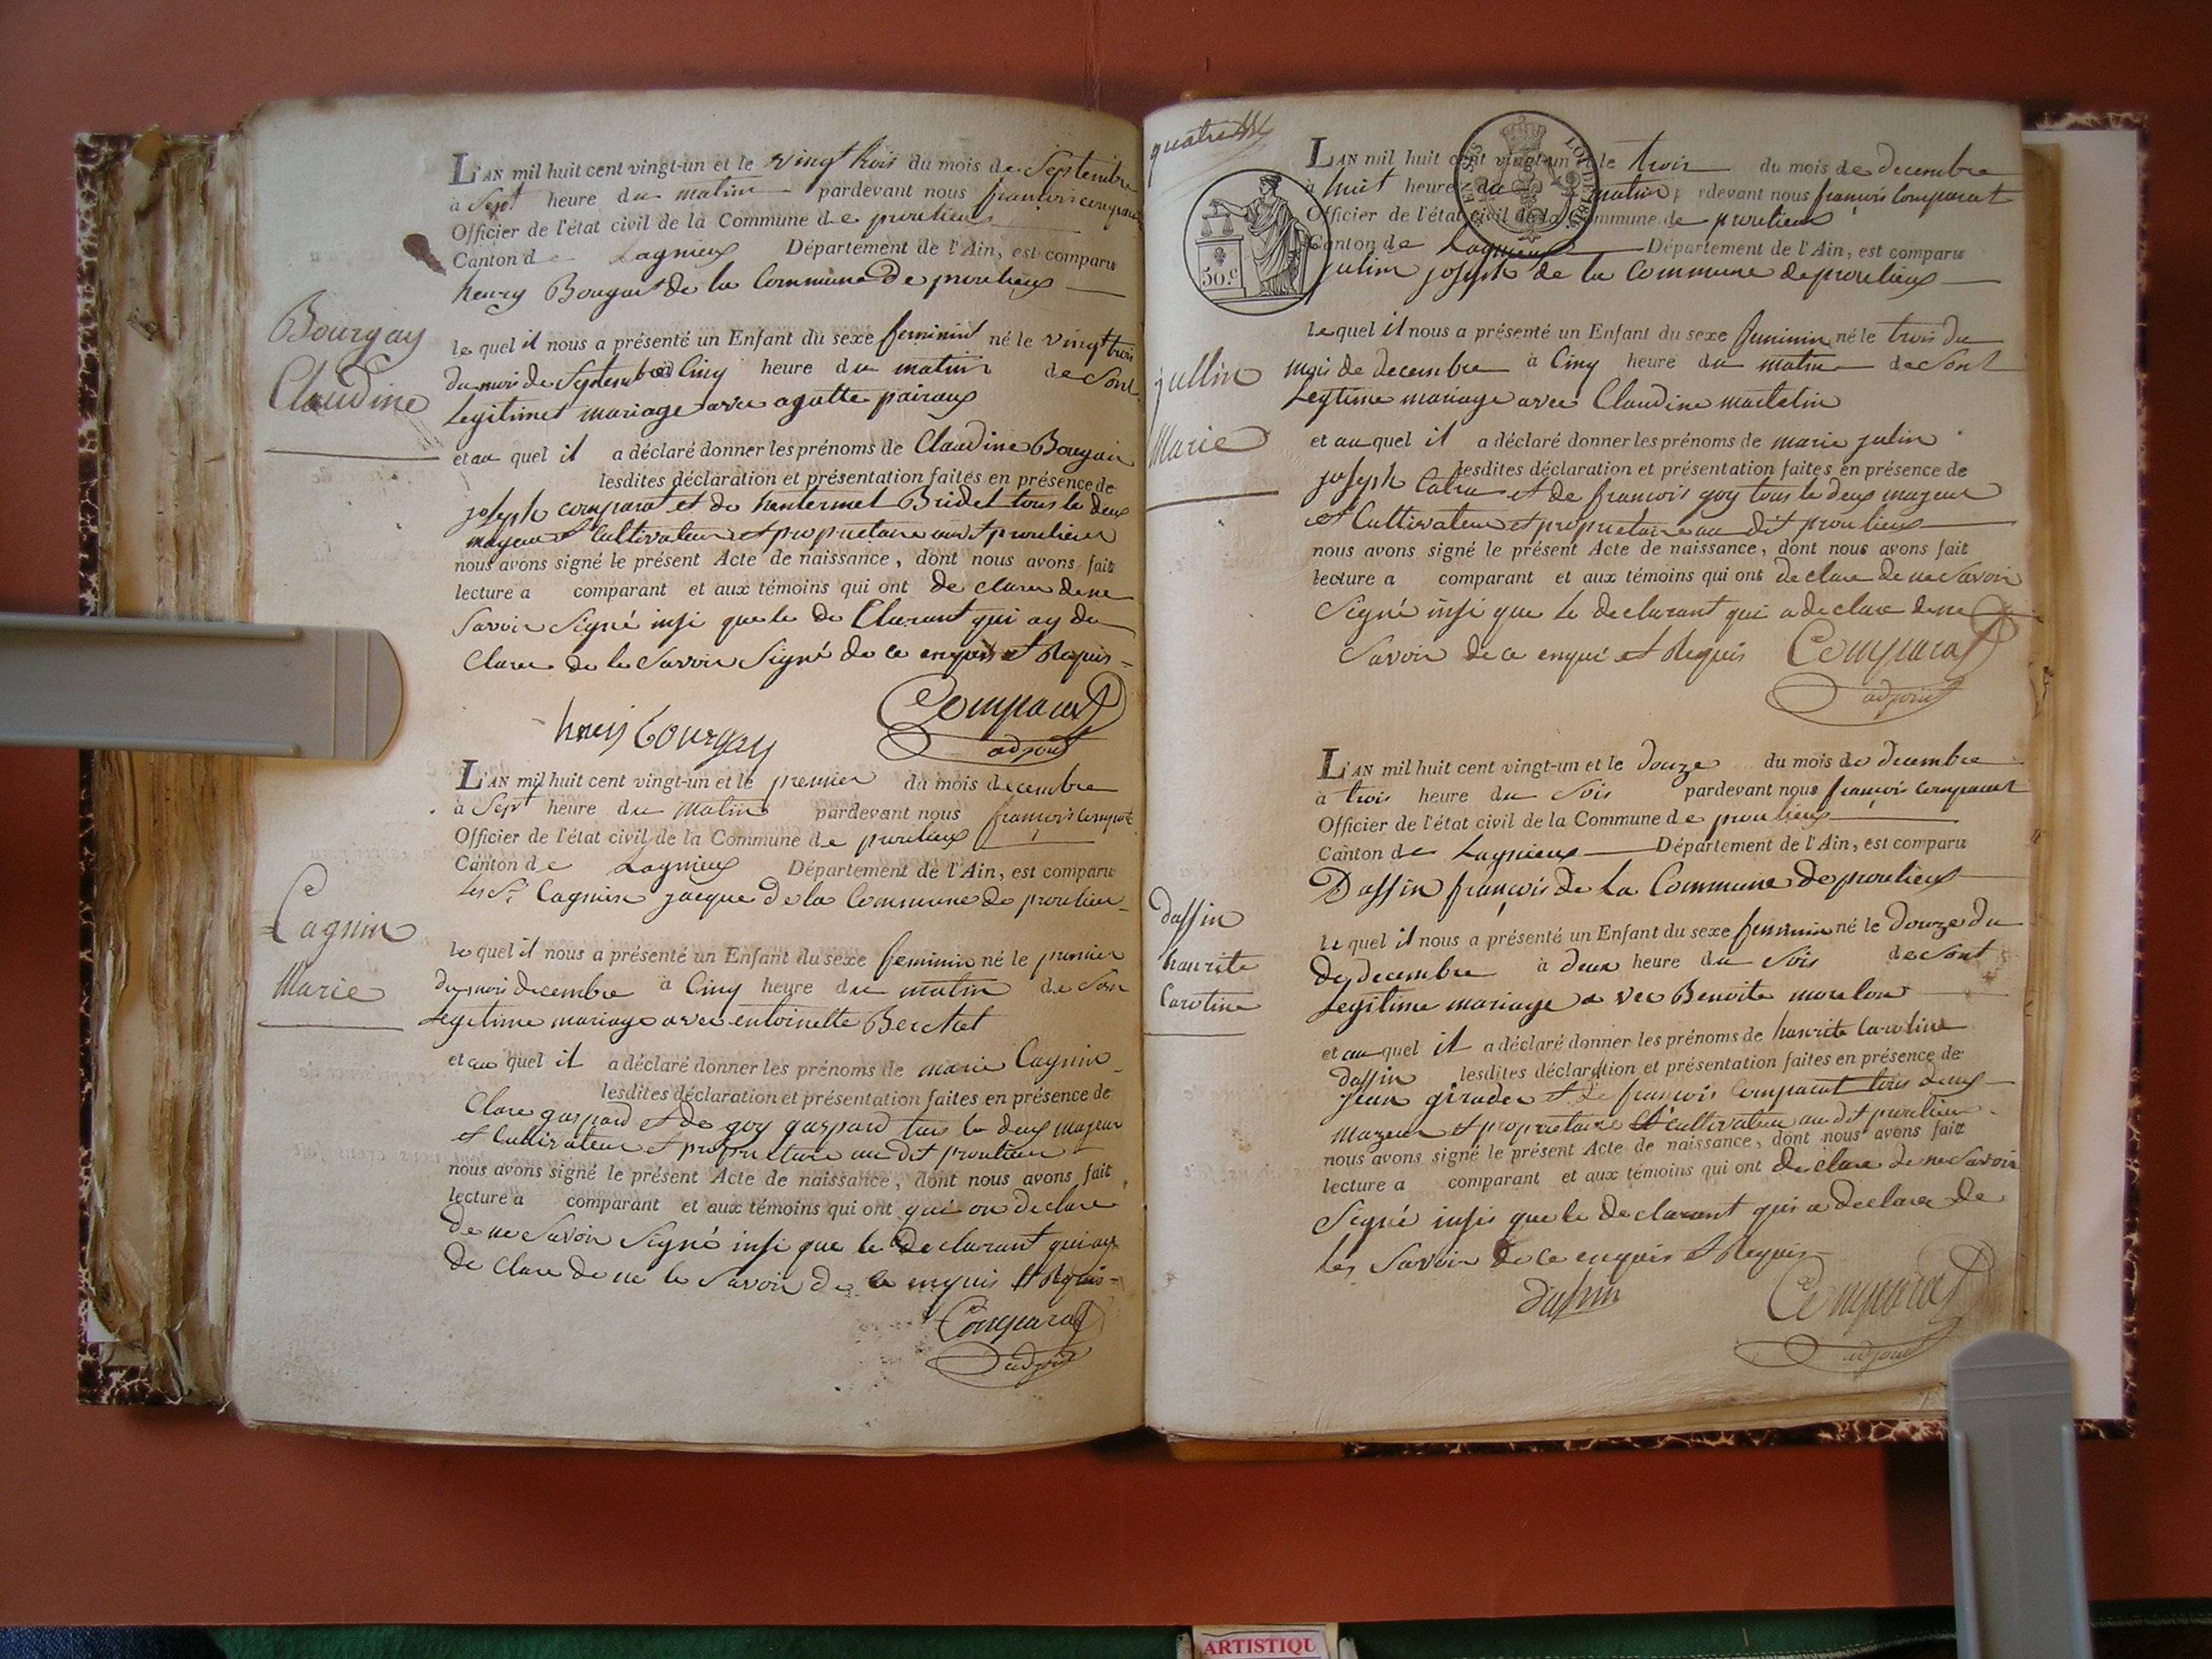 Bourgay
Claudine
L'AN mil huit cent vingt-un et le vingt trois du mois de Septembre
à Sept heure du matin pardevant nous françois comparat
Officier de l'état civil de la Commune de proulieux
Canton de Lagnieux Département de l'Ain, est comparu
henry Bougai de la Commune De proulieux
le quel il nous a présenté un Enfant du sexe feminin né le vingt trois
du mois de Septembre à Cinq heure du matin de Sont
Legitimes mariage avec agatte pairaux
et au quel il a déclaré donner les prénoms de Claudine Bougai
lesdites déclaration et présentation faites en présence de
joseph comparat et de Bridel tous le deux
mageur et Cultivateur et proprietaire audit proulieux
nous avons signé le présent Acte de naissance, dont nous avons fait
lecture a comparant et aux témoins qui ont de clarer de ne
Savoir Signé insi que le de Clarant qui ay de
Clarer de le Savoir Signé de ce enquis et Requis
Comparat
adjoint
Cagnin
Marie
L'AN mil huit cent vingt-un et le premier du mois decembre
à Sept heure du Matin pardevant nous francois comparat
Officier de l'état civil de la Commune de proulieux
Canton de Lagnieux Département de l'Ain, est comparu
Les Sr Cagnin jacque de la Commune de proulieux
le quel il nous a présenté un Enfant du sexe feminin né le premier
du mois decembre à Cinq heure du matin de Son
Legitime mariage avec entoinette Berchet
et au quel il a déclaré donner les prénoms de marie Cagnin
lesdites déclaration et présentation faites en présence de
Clare gaspard et de goy gaspard tous le deux majeur
et Cultivateur et proprietaire au dit proulieux
nous avons signé le présent Acte de naissance, dont nous avons fait
lecture a comparant et aux témoins qui ont qui on declare
de ne Savoir Signé insi que le Declarant qui ay
de Clare de ne le Savoir de ce enquis et Requis
Comparat
adjoint
50.c
jullin
Marie
L'AN mil huit cent vingt-un et le trois du mois de decembre
à huit heure du matin pardevant nous françois Comparat
Officier de l'état civil de la Commune de proulieux
Canton de Lagnieux Département de l'Ain, est comparu
julin joseph de la Commune de proulieux
le quel il nous a présenté un Enfant du sexe feminin né le trois du
mois de decembre à Cinq heure du matin de Sont
Legtime mariage avec Claudine martelin
et au quel il a déclaré donner les prénoms de marie julin
lesdites déclaration et présentation faites en présence de
joseph et de francois goy tous le deux mageur
et Cultivateur et proprietaire au dit proulieux
nous avons signé le présent Acte de naissance, dont nous avons fait
lecture a comparant et aux témoins qui ont de clare de ne Savoir
Signé insi que le declarant qui a declare de ne
Savoir de ce enqui et Requis Comparat
adjoint
daffin
hanrite
Caroline
L'AN mil huit cent vingt-un et le douze du mois de decembre
à trois heure du Soir pardevant nous françois comparat
Officier de l'état civil de la Commune de proulieux
Canton de Lagnieux Département de l'Ain, est comparu
Daffin françois de La Commune de proulieux
le quel il nous a présenté un Enfant du sexe feminin né le Douze du
de decembre à deux heure du Soir de Sont
Legitime mariage a vec Benoite
et au quel il a déclaré donner les prénoms de hanrite Caroline
daffin lesdites déclaration et présentation faites en présence de
jean girader et de francois comparat tous deux
Mageur et proprietaire et cultivateur au dit proulieux
nous avons signé le présent Acte de naissance, dont nous avons fait
lecture a comparant et aux témoins qui ont de clare de ne Savoir
Signé insi que le declarant qui a declare de
les Savoir de ce enquis et Requis
Comparat
adjoint
ARTISTIQU